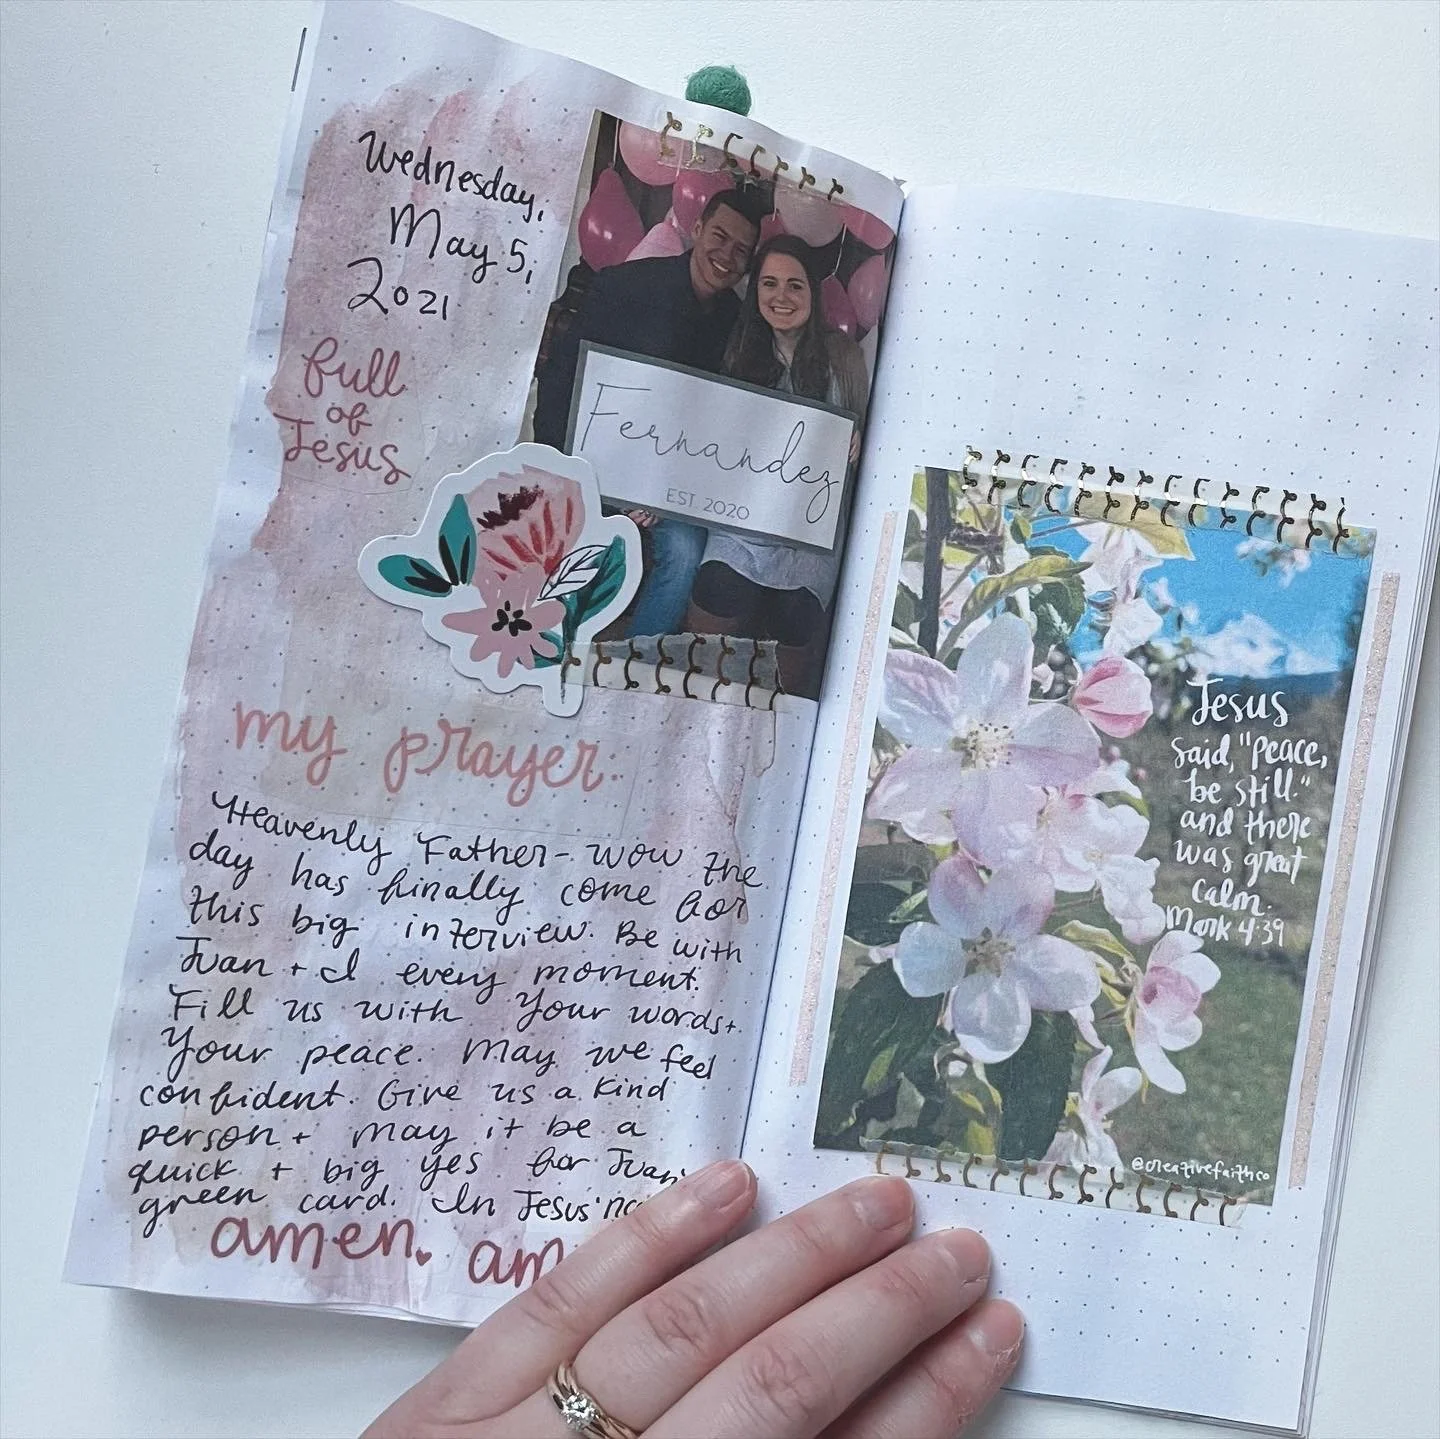 Wednesday,
May 5,
2021
full
of
Jesus
Fernandez
EST. 2020
my prayer:
Heavenly Father- wow the
day has finally come for
this big interview. Be with
Juan + I every moment.
Fill us with Your words +
Your peace. May we feel
confident. Give us a kind
person + may it be a
quick + big yes for Juan's
green card. In Jesus'
amen.
Jesus
said, "Peace,
be still."
and there
was great
calm.
Mark 4:39
@creativefaithco